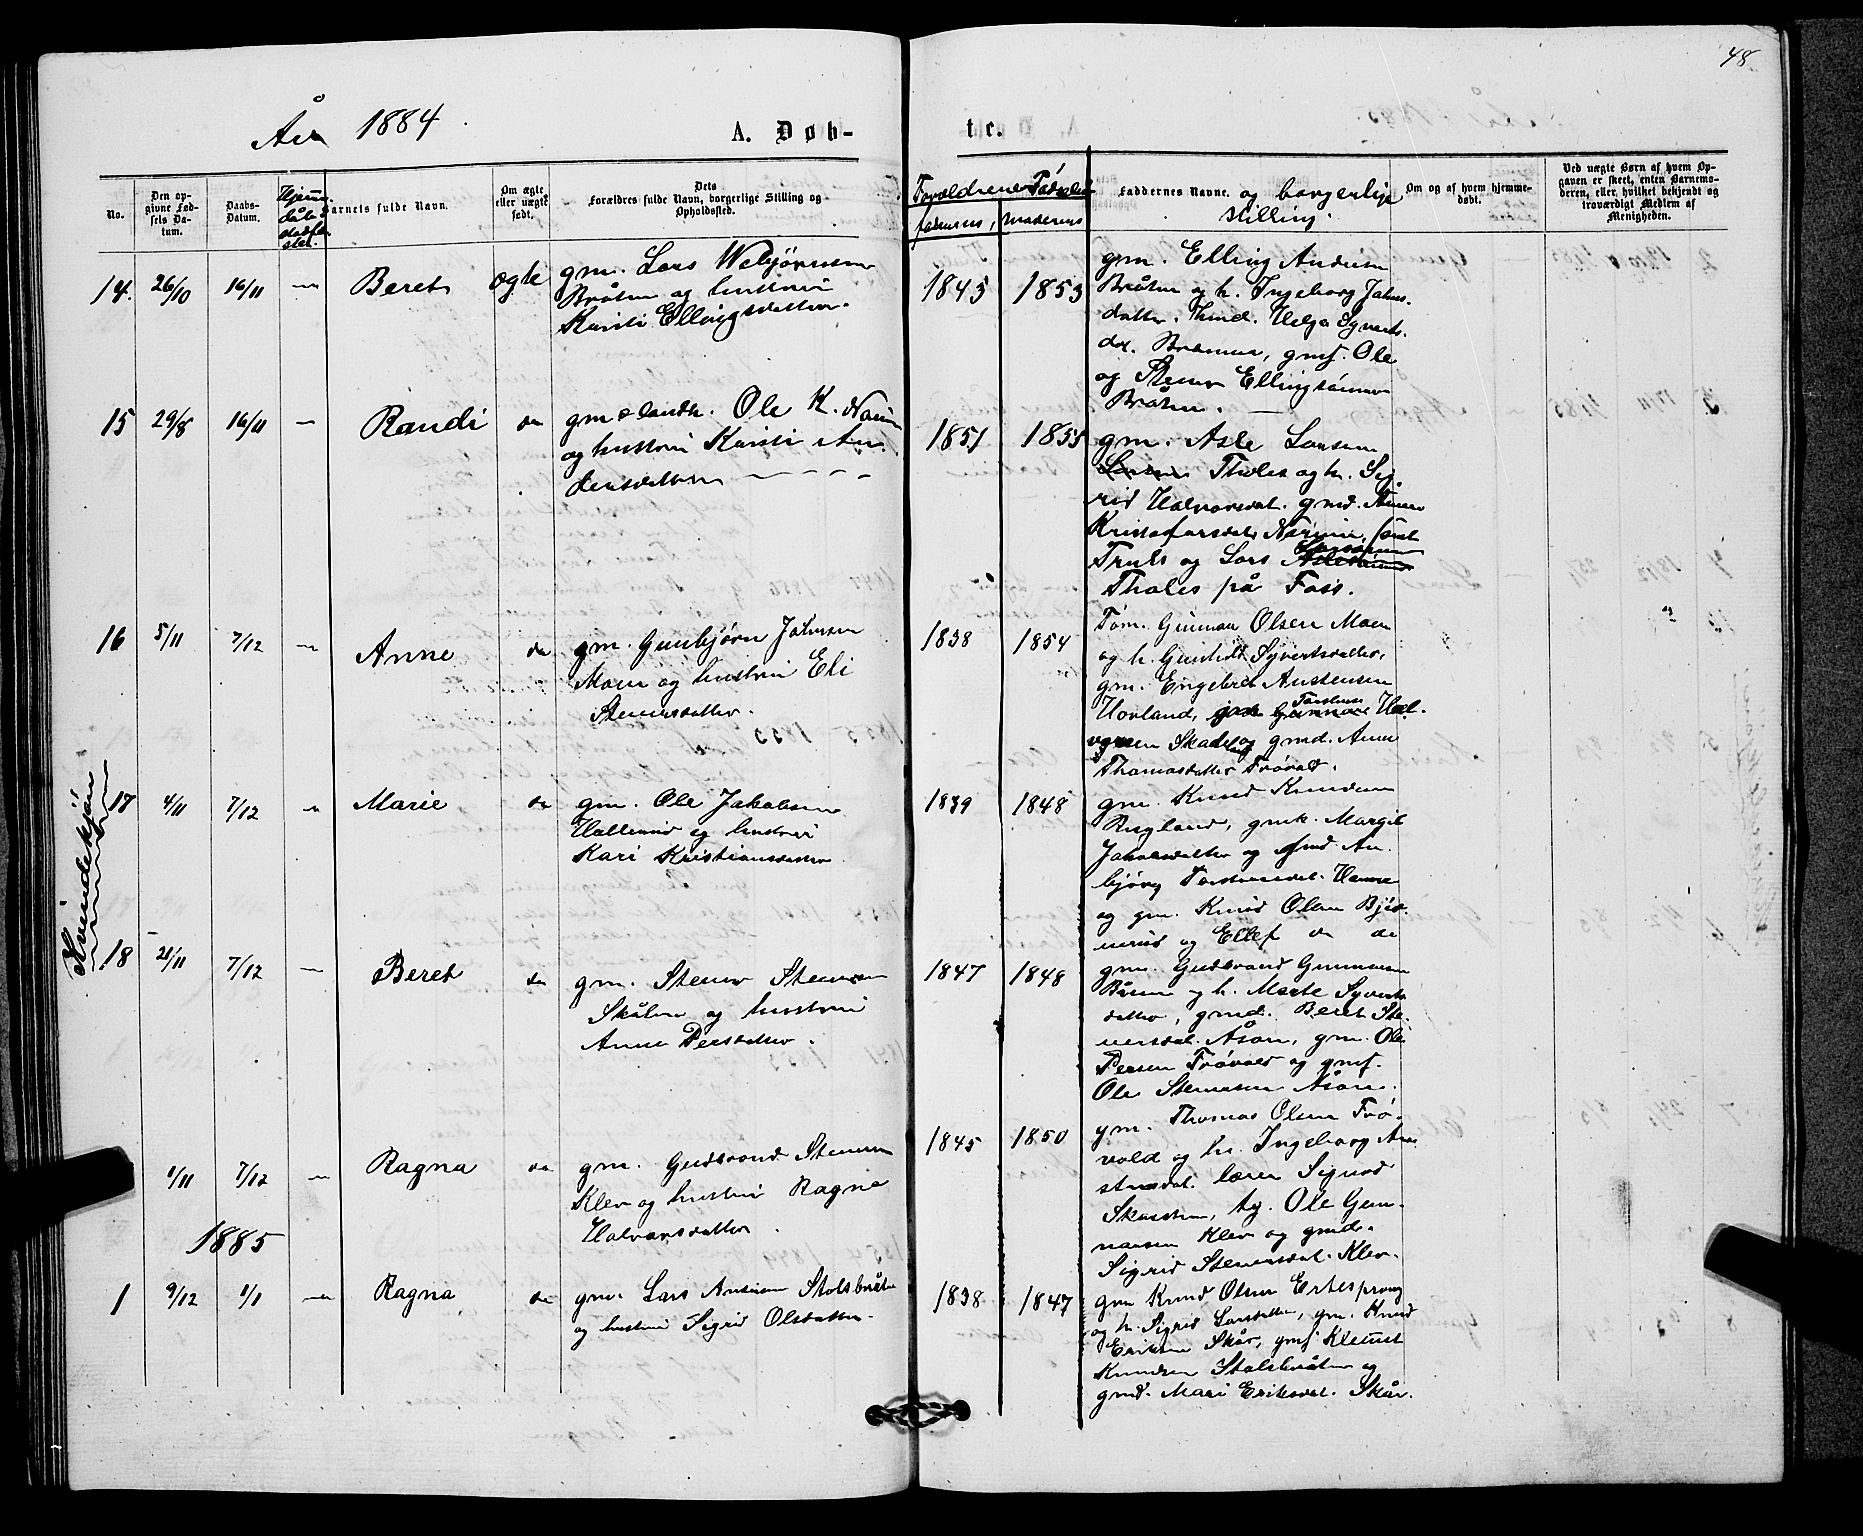 48
År 1884
A. Døb-
te.
No.
Den op-
givne Fød-
sels Da-
tum.
Daabs-
Datum.
Hjemme
døbt
stadfæ-
stet.
Barnets fulde Navn.
Om ægte
eller uægte
født.
Dets
Forældres fulde Navn, borgerlige Stilling og
Opholdssted.
Forældrenes Fødselsaar
faderens, moderens
Faddernes Navne. og borgerlige
stilling.
Om og af hvem hjemme-
døbt.
Ved uægte Børn af hvem Op-
gaven er skeet, enten Barnemo-
deren, eller, hvilket bekjendt og
troværdigt Medlem af
Menigheden.
Kvindekjøn
14. 26/10 16/11 — Beret ægte
gm. Lars Webjørnsen
Bråten og hustru
Kristi Ellingsdatter.
1845 1853
gm. Elling Andersen
Bråten og h. Ingeborg Johns-
datter. Helga Syverts-
dt. Bråten, gmf. Ole
og Stener Ellingsønner
Bråten.
15 29/8 16/11 — Randi do
gm. Ole K. Narum
og hustru Kristi An-
dersdatter
1851 1855
gm. Asle Larsen
Larsen Tholes og h. Sig-
rid Halvorsdat. gmd.
Kristofersdat.
Truls og Lars
Tholes på Foss.
16 5/11 7/12 — Anne do
gm. Gunbjørn Johnsen
Moen og hustru Eli
Stenersdatter.
1838 1854
Tøm. Gunnar Olsen Moen
og h. Gunhild Syvertsdatter,
gm. Engebret Austensen
Hovland, Torstein Hal-
vorsen og gmd. Anne
Thomasdatter Trøvold.
17 4/11 7/12 — Marie do
gm. Ole Jakobsen
og hustru
Kari Kristiansdatter
1839 1848
gm. Knud Knudsen
Rugland, gmk. Margit
Jakobsdatter og gmd An-
bjørg Torstensdat.
og gm. Knud Olsen
og Ellef do do
18 21/11 7/12 — Beret do
gm. Stener Stenersen
Skålen og hustru
Anne Persdatter.
1847 1848
gm. Gudbrand Gunnarsen
og h. Marte Syverts-
datter, gmd. Beret Ste-
nersdat. Åsan, gm. Ole
Persen Trøvold og gmf.
Ole Stenersen Åsan.
1/11 7/12 — Ragna do
gm. Gudbrand Stenersen
Klev og hustru Ragne
Halvorsdatter.
1845 1850
gm. Thomas Olsen Trø-
vold og h. Ingeborg
lærer Sigurd
Ole Gun-
narsen Klev og gmd.
Sigrid Stenersdat. Klev.
1885
1 9/12 1/1 — Ragna do
gm. Lars Stolsbråten
og hustru Sigrid Olsdatter.
1838 1847
gm Knud Olsen Ertesprang
og h. Sigrid Larsdatter, gm. Knud
Eriksen Skår, gmf. Klemet
Knudsen Stolsbråten og
gmd. Mari Eriksdat. Skår.